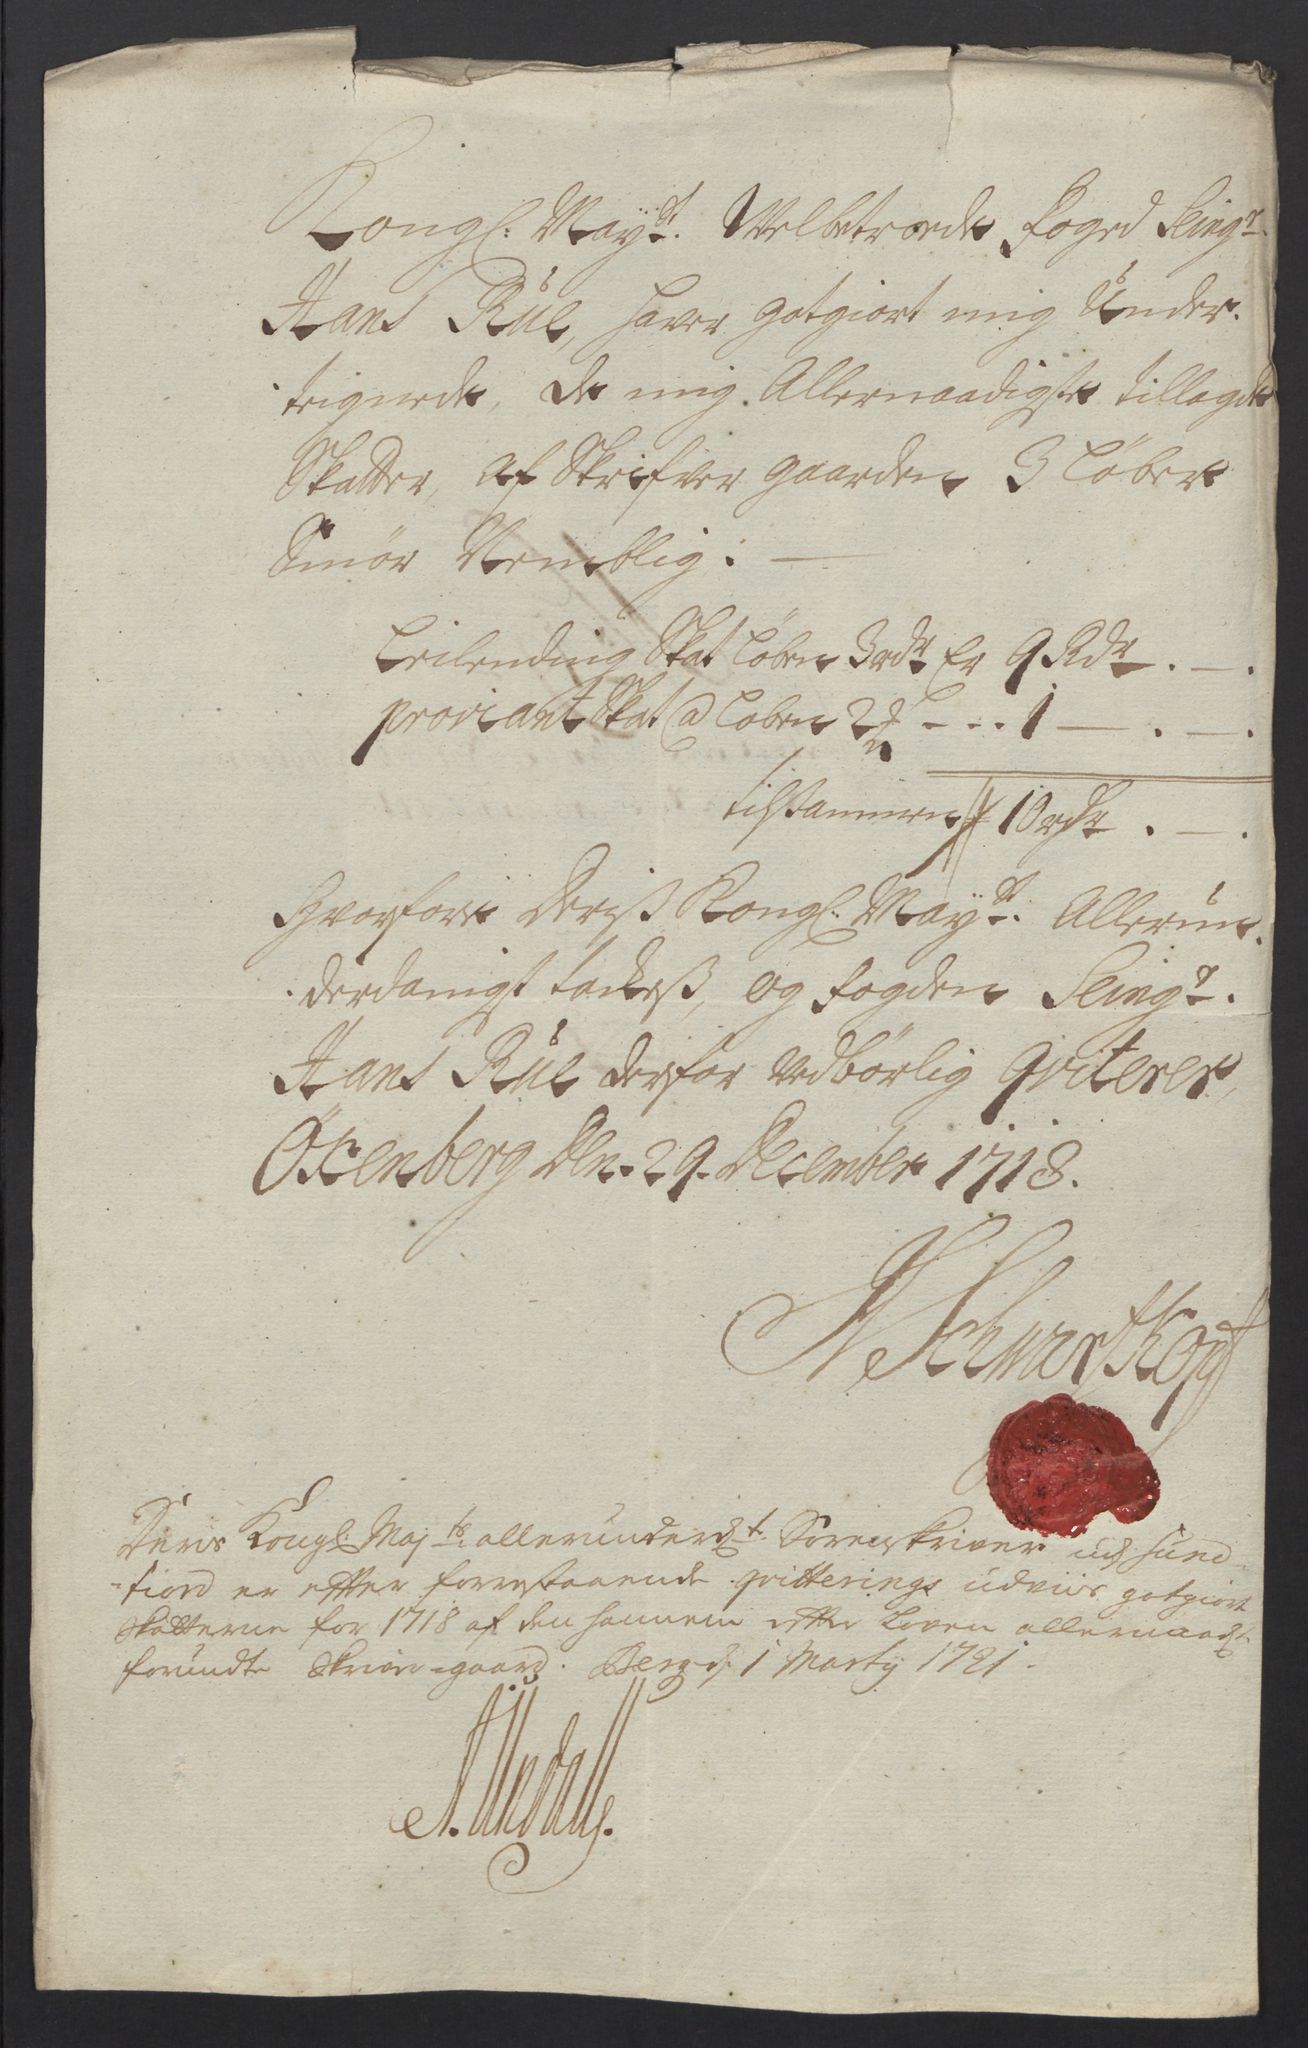 Kongl: May:tt Welbetroede foged Seingr.
Hans Rüe, hafver gotgiort mig Under-
teignede, de mig Allernaadigste tillagde
Skatter, af Skrifver gaarden 3 Løber
Smör Nemblig: —
Leilending Skat Løben 3 rdr Er 9 Rdr . — .
proviant Skat @ Løben 2 - - - 1 — . — .
tilsammen 10 rdr . — .
Hvorfore Deriß Kongl: May:tt Allerun-
derdanigst tackeß, og fogden Seingr.
Hans Rüe derfor vedbörlig qviterer,
Öxenberg Den. 29. December 1718.
Schwartkopf
Deris Kongl: Maj:ts allerunderd:t Sorenskriver udj Sund-
fiord er efter forrestaaende qvitterings udviis gotgiort
Skatterne for 1718 af den hannem efter Loven allernaadst
forundte Skriver-gaard. Berg: d: 1 Marty 1721.
A. Undall.